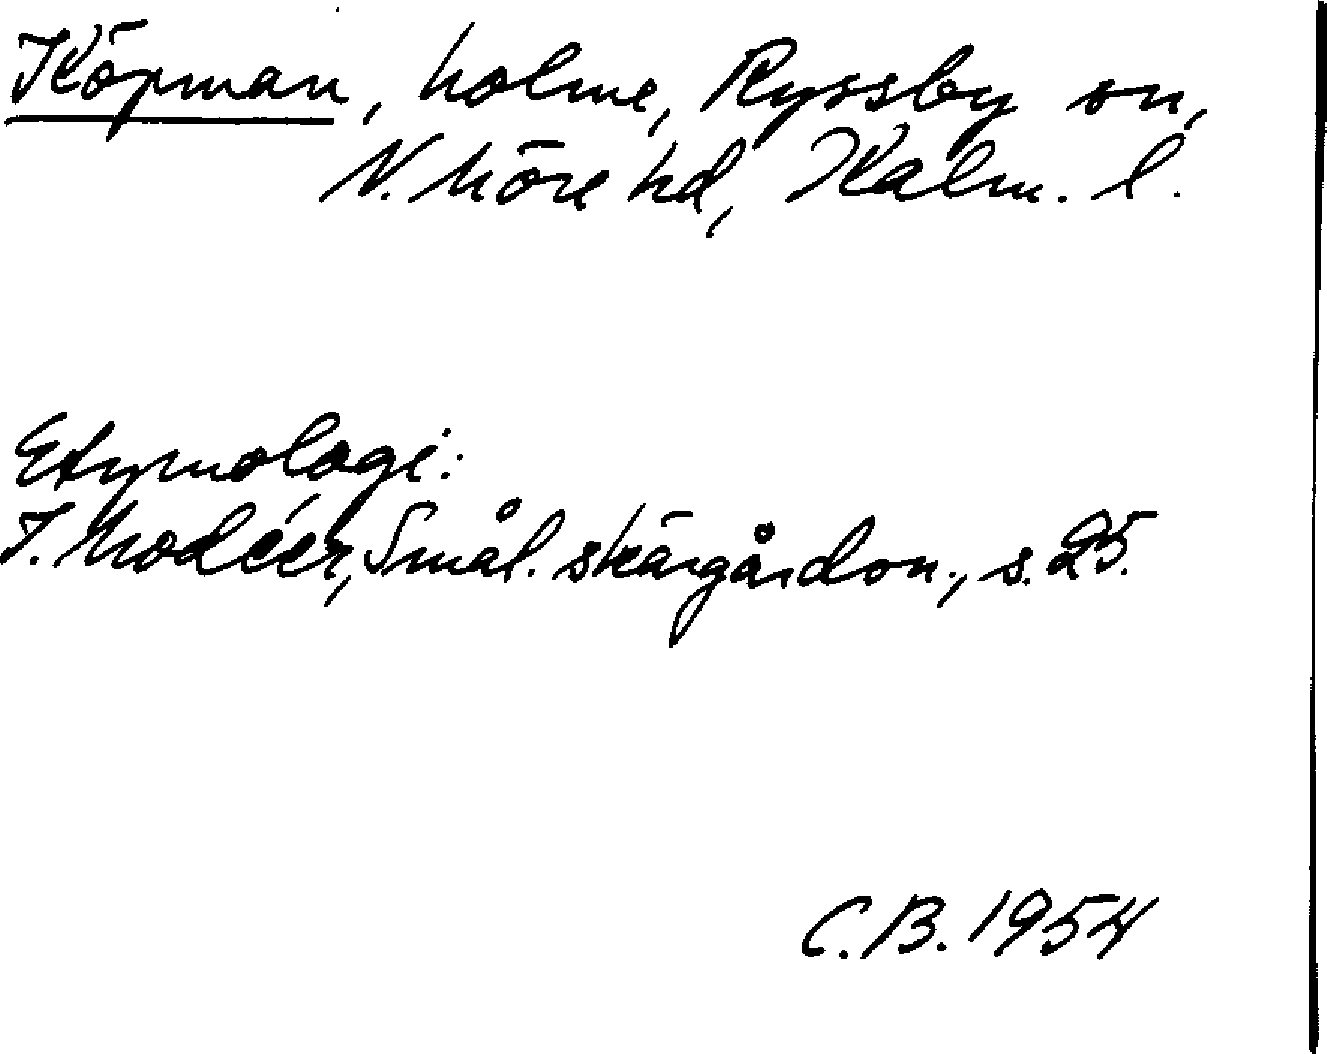 Köpman, holme, Ryssby sn,
N. Möre hd, Kalm. l.
Etymologi:
I. Modéer, Smål. skärgårdsn., s. 25.
C.B. 1954